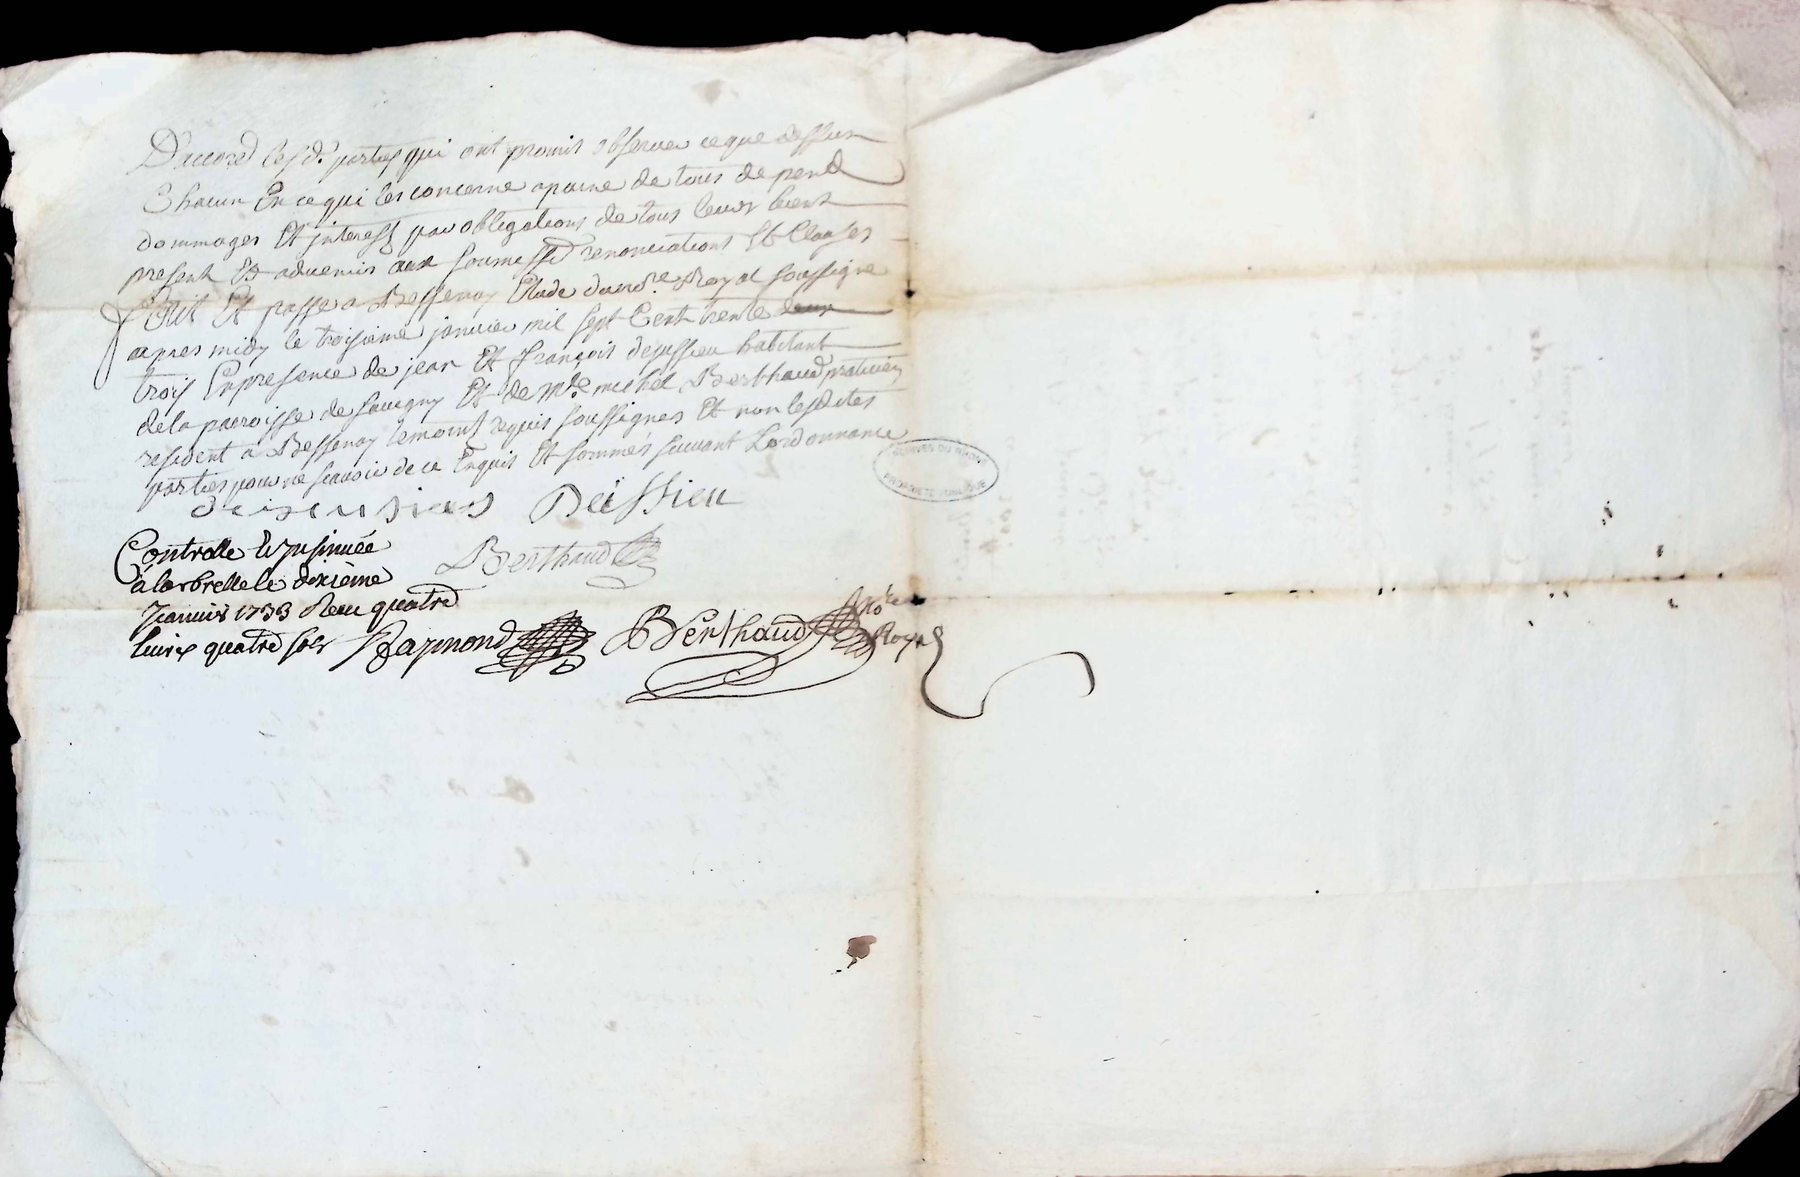 D'accord lesd. parties qui ont promis observer ce que dessus
Chacun En ce qui les concerne apaine de tous depend
dommages Et interest par obligations de tous leurs biens
present Et advenirs aux soumissd renonciations Et Clauses
fait Et passe a Bessenay Etude dud n.re Royal soussigne
apres midy le troisieme janvier mil sept Cent trente deux
trois En presence de jean Et françois dejussieu habitant
de la parroisse de savigny Et de M.re michel Berthaud praticien
resident a Bessenay temoins requis soussignes Et non lesdites
parties pour ne scavoir de ce Enquis Et sommés suivant Lordonnance
Deissieu
Berthaud
Controlle Et Insinuée
à larbrelle le dixième
Janvier 1733 Receu quatre
livres quatre sols Raymond
Berthaud No.re Royal
ARCHIVES DU RHÔNE
PROPRIÉTÉ PUBLIQUE